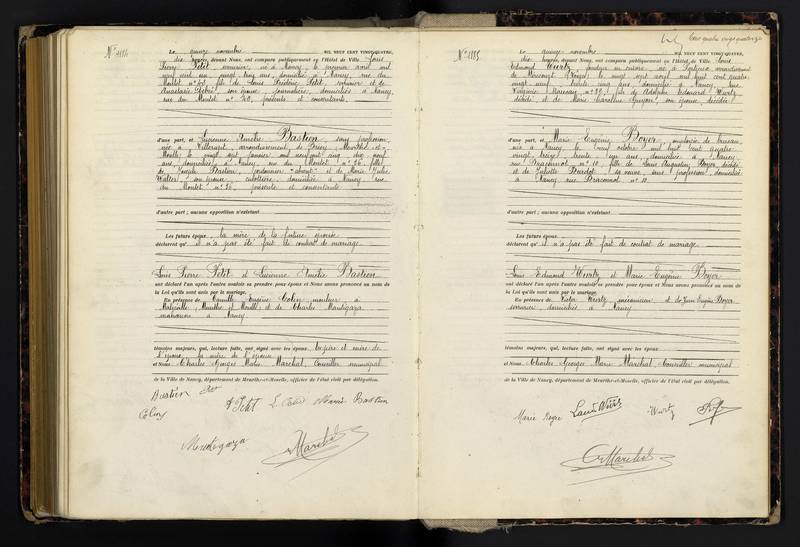 N° 1184
Le quinze novembre MIL NEUF CENT VINGT-QUATRE,
dix heures, devant Nous, ont comparu publiquement en l'Hôtel de Ville Louis
Pierre Petit, né à Nancy, le premier avril mil
neuf cent un, vingt trois ans, domicilié à Nancy, rue du
Montet n° 40, fils de Louis Frédéric Petit, et de
Anastasie son épouse, journalière, domiciliés à Nancy,
rue du Montet n° 40, présents et consentants.
d'une part, et Lucienne Amélie Bastien sans profession,
née à arrondissement de Briey (Meurthe-et-
Moselle) le vingt sept janvier mil neuf cent cinq, dix neuf
ans, domiciliée à Nancy rue du Montet n° 26, fille
de Joseph Bastien, cordonnier absent et de Marie Julie
Walter son épouse, domiciliée à Nancy rue
du Montet n° 26, présente et consentante
d'autre part ; aucune opposition n'existant
Les futurs époux, la mère de la future épouse
déclarent qu'il n'a pas été fait de contrat de mariage
Louis Pierre Petit et Lucienne Amélie Bastien
ont déclaré l'un après l'autre vouloir se prendre pour époux et Nous avons prononcé au nom de
la Loi qu'ils sont unis par le mariage.
En présence de Camille Eugène Colin mouleur à
(Meurthe et Moselle) et de Charles Montegaza
à Nancy
témoins majeurs, qui, lecture faite, ont signé avec les époux, les père et mère de
l'époux, la mère de l'épouse
et Nous Charles Georges Marie Maréchal, Conseiller municipal
de la Ville de Nancy, département de Meurthe-et-Moselle, officier de l'état civil par délégation.
Bastien
Colin
Petit
Bastien
Montegaza
Maréchal
N° 1185
Le quinze novembre MIL NEUF CENT VINGT-QUATRE,
dix heures, devant Nous, ont comparu publiquement en l'Hôtel de Ville Louis
Edmond Wurtz, né à arrondissement
de Mirecourt (Vosges), le vingt sept août mil huit cent quatre
vingt neuf, trente cinq ans, domicilié à Nancy, rue
n° 39, fils de Adolphe Edouard Wurtz
décédé, et de Marie Caroline son épouse, décédée
d'une part, et Marie Eugénie Boyer employée de bureau,
née à Nancy, le onze octobre mil huit cent quatre
vingt treize, trente un ans, domiciliée à Nancy
rue Braconnot n° 10, fille de Augustin Boyer, décédé
et de Juliette Bourdot sa veuve, sans profession, domiciliée
à Nancy rue Braconnot n° 10
d'autre part ; aucune opposition n'existant
Les futurs époux
déclarent qu'il n'a pas été fait de contrat de mariage
Louis Edmond Wurtz et Marie Eugénie Boyer
ont déclaré l'un après l'autre vouloir se prendre pour époux et Nous avons prononcé au nom de
la Loi qu'ils sont unis par le mariage.
En présence de Victor Wurtz, mécanicien et de Jean Eugène Boyer
serrurier, domiciliés à Nancy
témoins majeurs, qui, lecture faite, ont signé avec les époux
et Nous Charles Georges Marie Maréchal, Conseiller municipal
de la Ville de Nancy, département de Meurthe-et-Moselle, officier de l'état civil par délégation.
Marie Boyer Louis Wurtz Wurtz
Maréchal